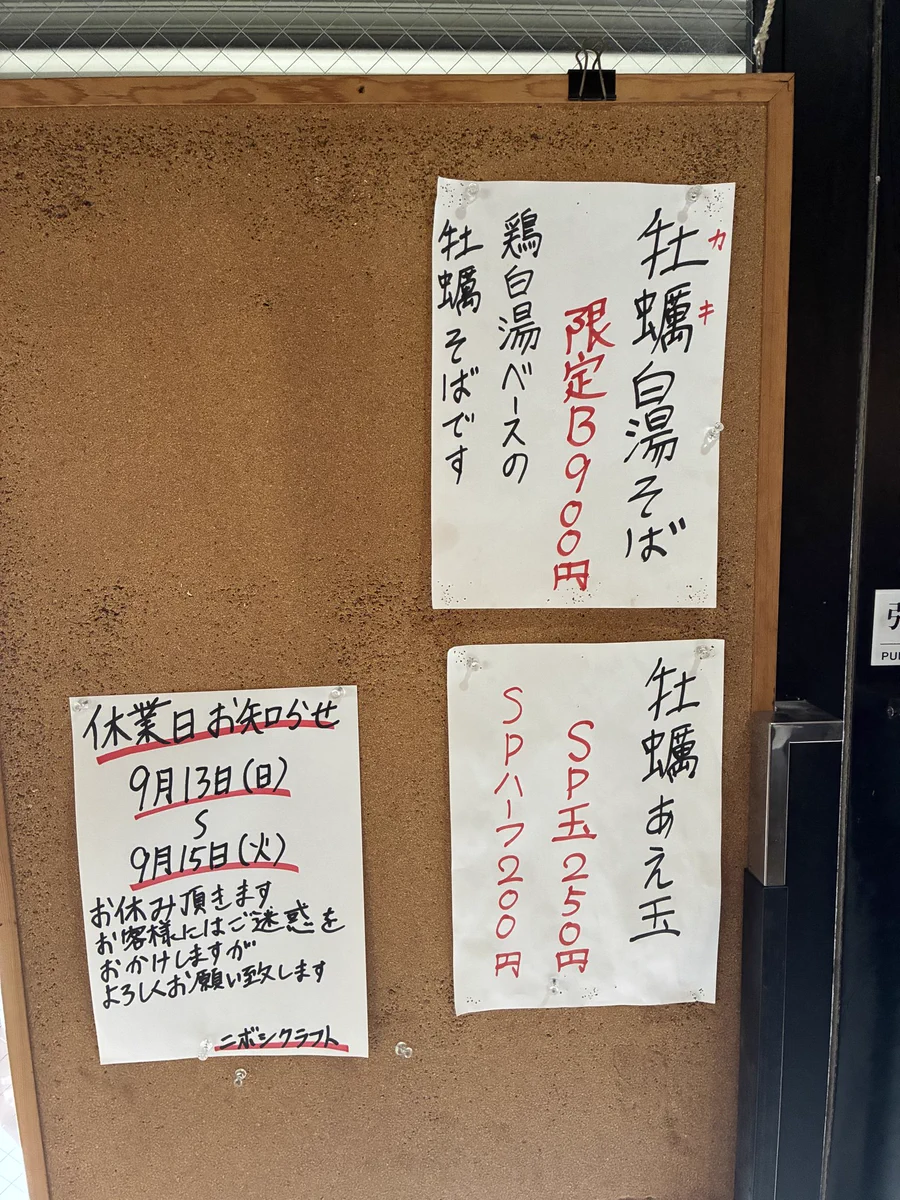 牡蠣白湯そば
カキ
限定B900円
鶏白湯ベースの
牡蠣そばです
牡蠣あえ玉
SP玉250円
SPハーフ200円
休業日お知らせ
9月13日(日)
〜
9月15日(火)
お休み頂きます
お客様にはご迷惑を
おかけしますが
よろしくお願い致します
ニボシクラフト